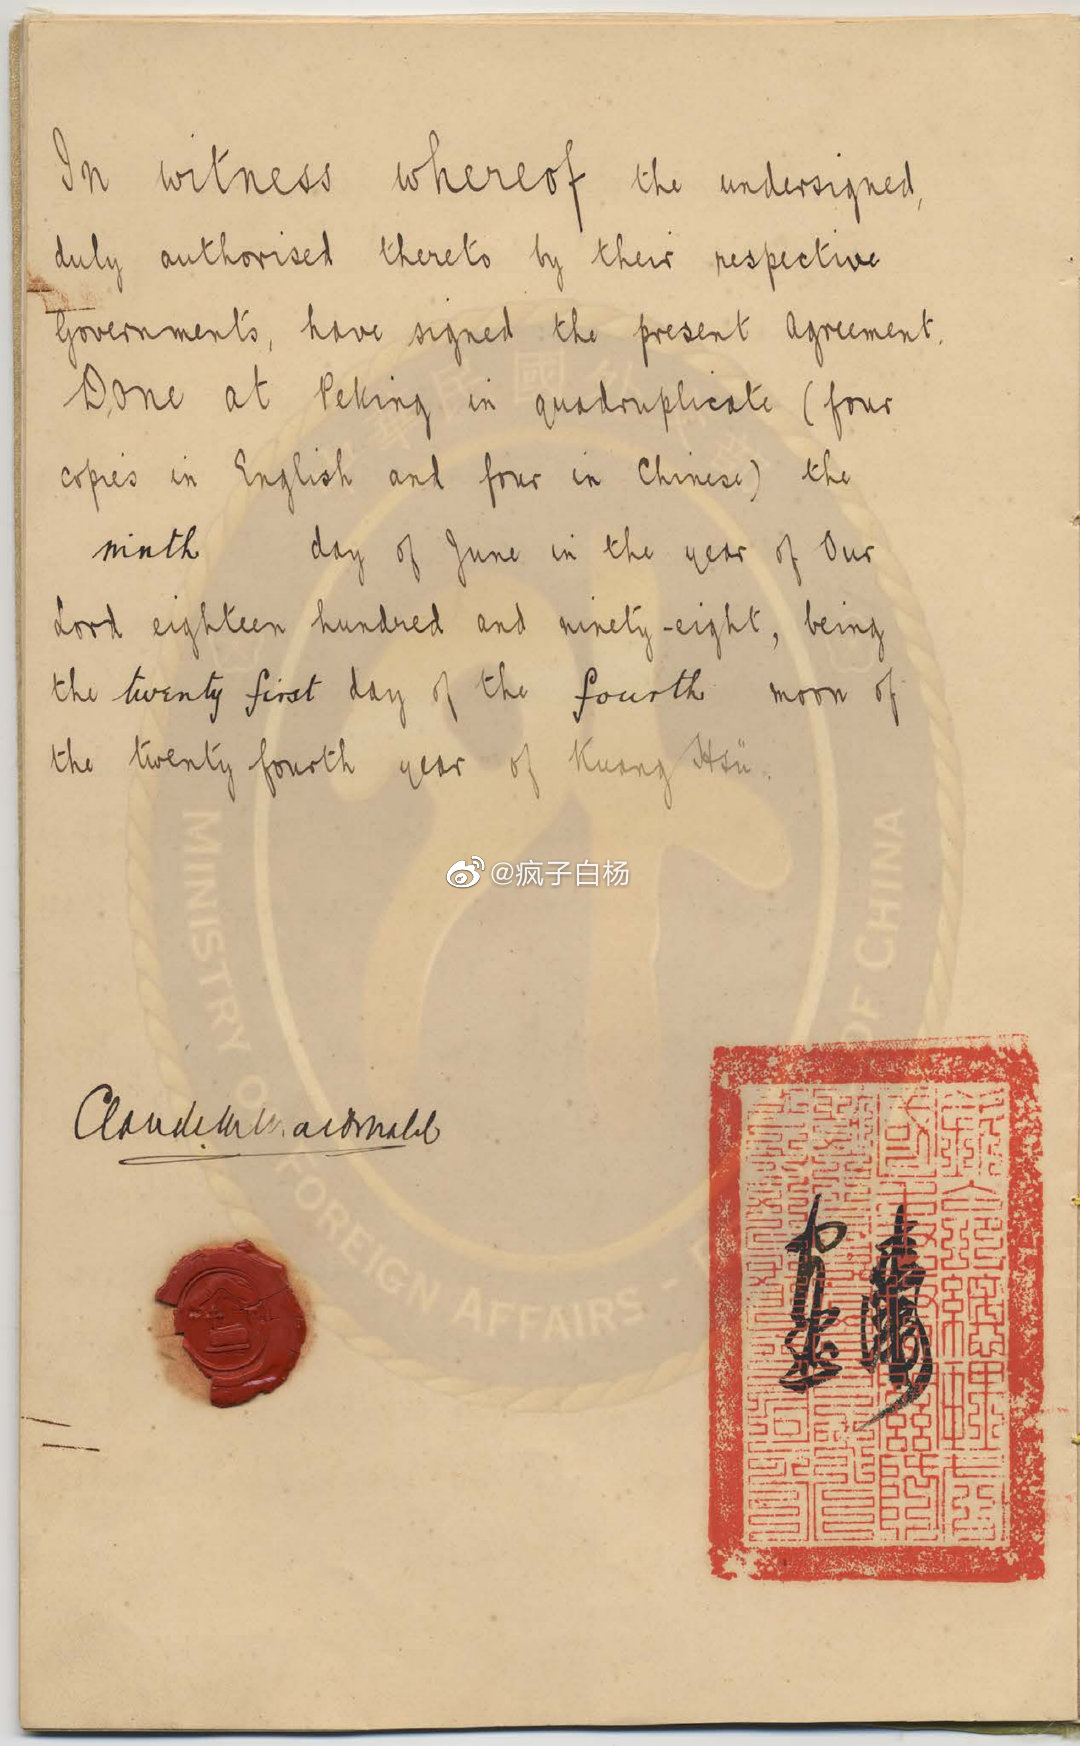 In witness whereof the undersigned,
duly authorised thereto by their respective
Governments, have signed the present Agreement.
Done at Peking in quadruplicate (four
copies in English and four in Chinese) the
ninth day of June in the year of Our
Lord eighteen hundred and ninety-eight, being
the twenty first day of the fourth moon of
the twenty fourth year of Kuang Hsü.
@疯子白杨
MINISTRY OF FOREIGN AFFAIRS - OF CHINA
Claude M. MacDonald